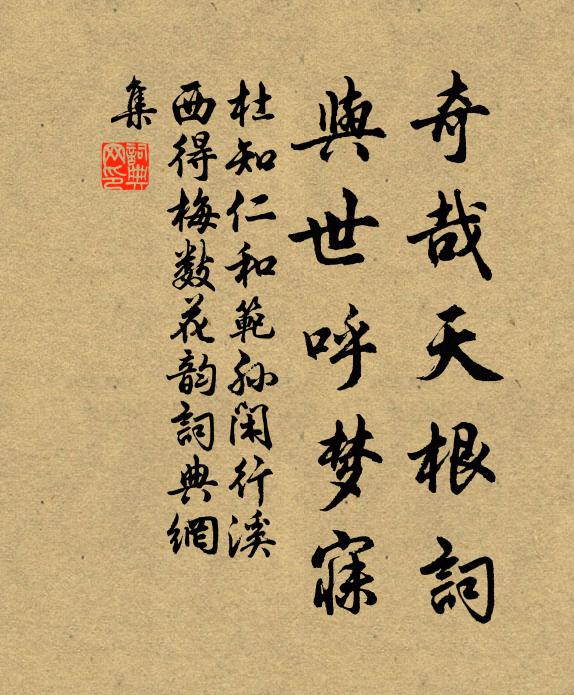 奇哉天根詞
與世呼梦寐
杜知仁和範孙闲行溪
西得梅数花韵詞典網
集
詞典網印